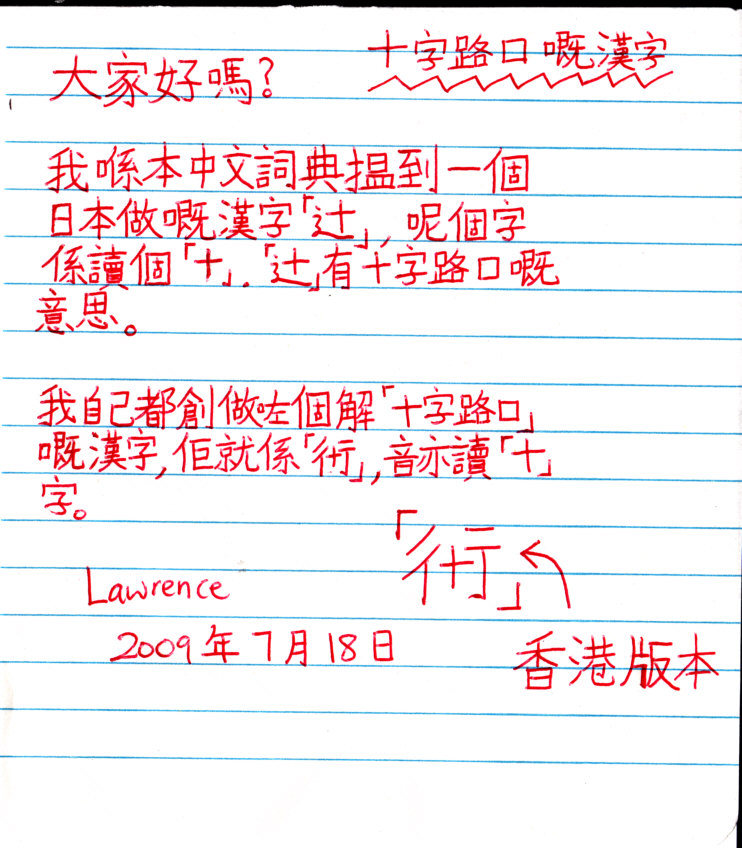 十字路口嘅漢字
大家好嗎?
我喺本中文詞典揾到一個
日本做嘅漢字「辻」, 呢個字
係讀個「十」.「辻」有十字路口嘅
意思。
我自己都創做咗個解「十字路口」
嘅漢字, 佢就係「⿲彳十亍」, 音亦讀「十」
字。
「⿲彳十亍」
Lawrence
2009年7月18日
香港版本